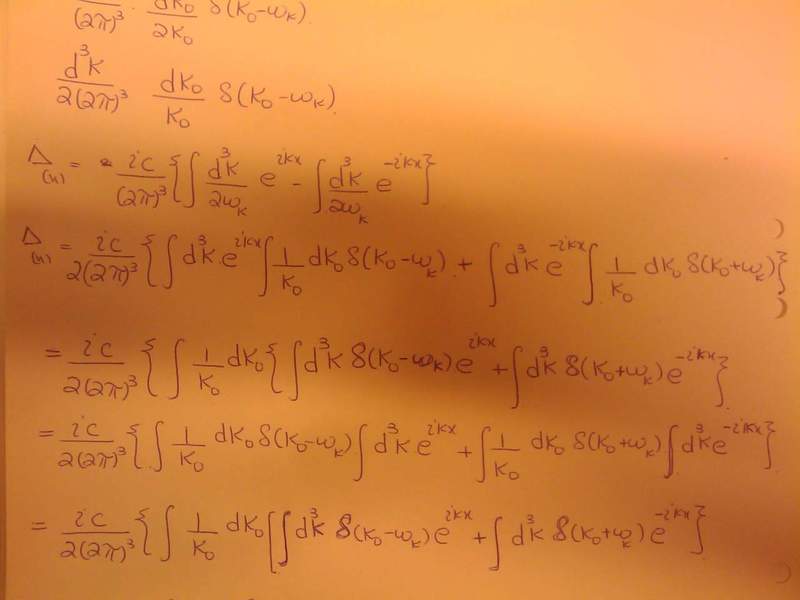 (2π)³ dK₀/2K₀ δ(K₀-ω_K).
d³K/2(2π)³ dK₀/K₀ δ(K₀-ω_K)
Δ₍ₓ₎ = - ic/(2π)³ {∫ d³K/2ω_K e^{ikx} - ∫ d³K/2ω_K e^{-ikx}}
Δ₍ₓ₎ = ic/2(2π)³ {∫ d³K e^{ikx} ∫ 1/K₀ dK₀ δ(K₀-ω_K) + ∫ d³K e^{-ikx} ∫ 1/K₀ dK₀ δ(K₀+ω_K)}
= ic/2(2π)³ {∫ 1/K₀ dK₀ {∫ d³K δ(K₀-ω_K) e^{ikx} + ∫ d³K δ(K₀+ω_K) e^{-ikx}}
= ic/2(2π)³ {∫ 1/K₀ dK₀ δ(K₀-ω_K) ∫ d³K e^{ikx} + ∫ 1/K₀ dK₀ δ(K₀+ω_K) ∫ d³K e^{-ikx}}
= ic/2(2π)³ {∫ 1/K₀ dK₀ [∫ d³K δ(K₀-ω_K) e^{ikx} + ∫ d³K δ(K₀+ω_K) e^{-ikx}}